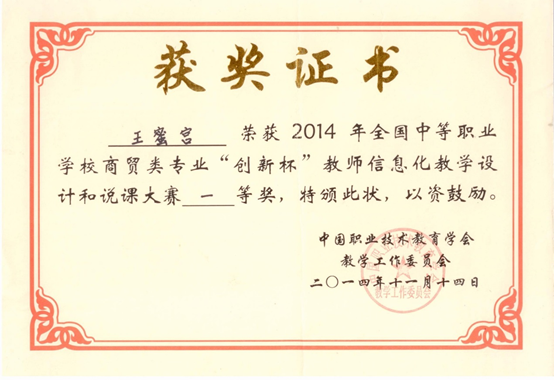 获奖证书
王蜜宫 荣获 2014 年全国中等职业
学校商贸类专业“创新杯”教师信息化教学设
计和说课大赛 一 等奖，特颁此状，以资鼓励。
中国职业技术教育学会
教学工作委员会
二〇一四年十一月十四日
教学工作委员会